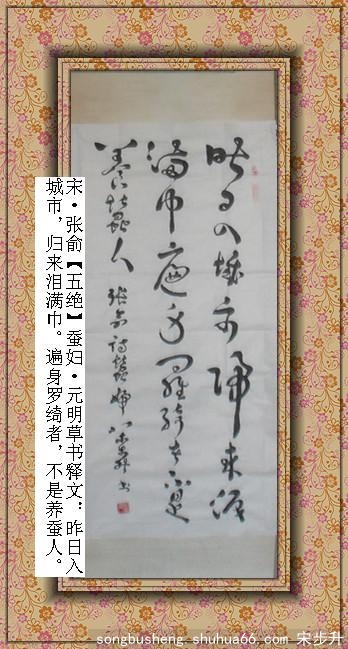 昨日入城市归来泪
满巾遍身罗绮者不是
养蚕人 张俞诗蚕妇
宋·张俞【五绝】蚕妇·元明草书释文：昨日入
城市，归来泪满巾。遍身罗绮者，不是养蚕人。
songbusheng.shuhua66.com 宋步升